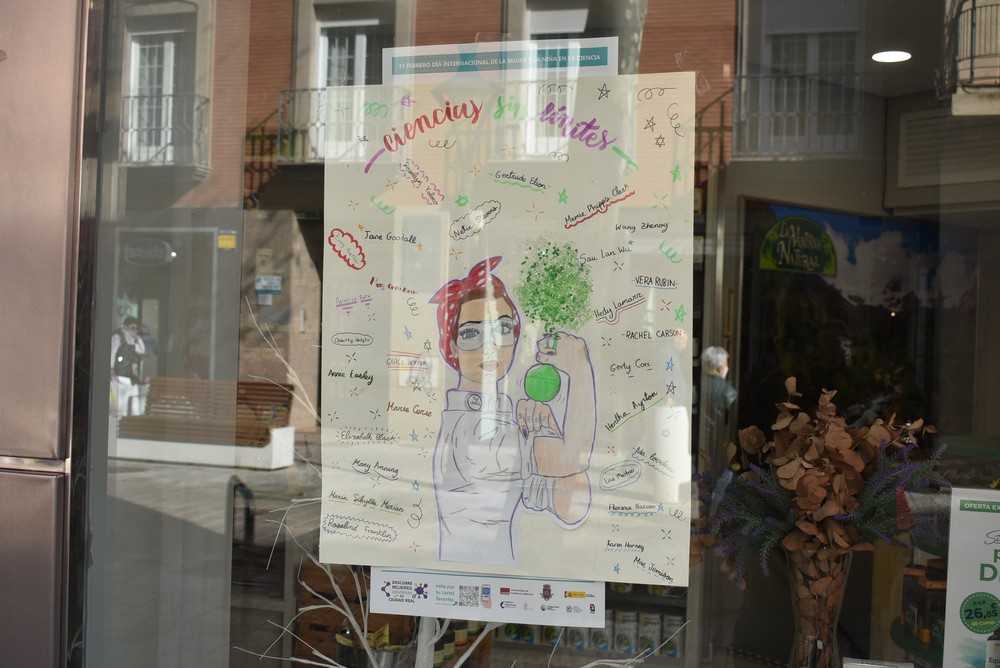 11 FEBRERO DÍA INTERNACIONAL DE LA MUJER Y LA NIÑA EN LA CIENCIA
ciencias sin límites
Rosalyn Yalow
Gertrude Elion
Nettie Stevens
Mamie Phipps Clark
Jane Goodall
Wang Zhenyi
Sau Lan Wu
VERA RUBIN
Hedy Lamarr
RACHEL CARSON
Dorothy Hodgkin
Gerty Cori
Annie Easley
Marie Curie
Hertha Ayrton
Elizabeth Black
Ada Lovelace
Mary Anning
Lise Meitner
Maria Sibylla Merian
Florence Bascom
Rosalind Franklin
Karen Horney
Mae Jemison
LA VENTANA NATURAL
DESCUBRE MUJERES
CIENTÍFICAS EN
CIUDAD REAL
vota por
tu cartel
favorito
OFERTA EX
26,85